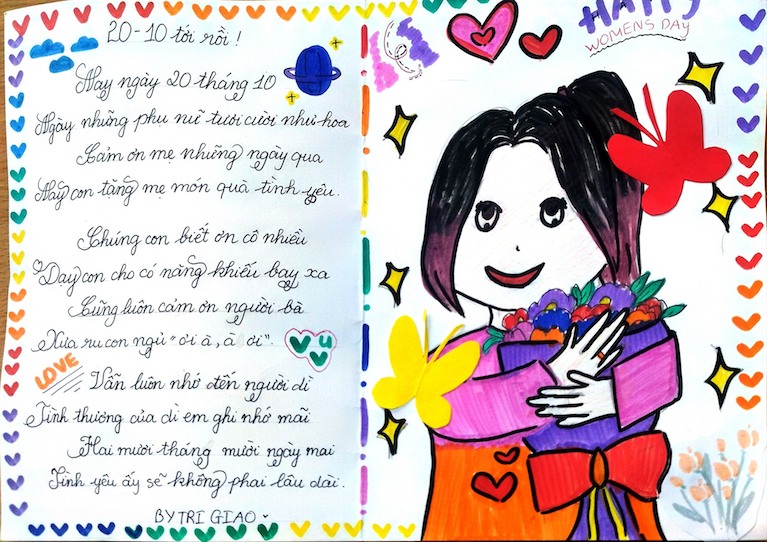 20-10 tới rồi!
Nay ngày 20 tháng 10
Ngày những phụ nữ tươi cười như hoa
Cảm ơn mẹ những ngày qua
Nay con tặng mẹ món quà tình yêu.
Chúng con biết ơn cô nhiều
Dạy con cho có năng khiếu bay xa
Cũng luôn cảm ơn người bà
Xưa ru con ngủ "ơi à, à ơi".
LOVE
Vẫn luôn nhớ đến người dì
Tình thương của dì em ghi nhớ mãi
Hai mươi tháng mười ngày mai
Tình yêu ấy sẽ không phai lâu dài.
BY TRI GIAO
HAPPY
WOMENS DAY